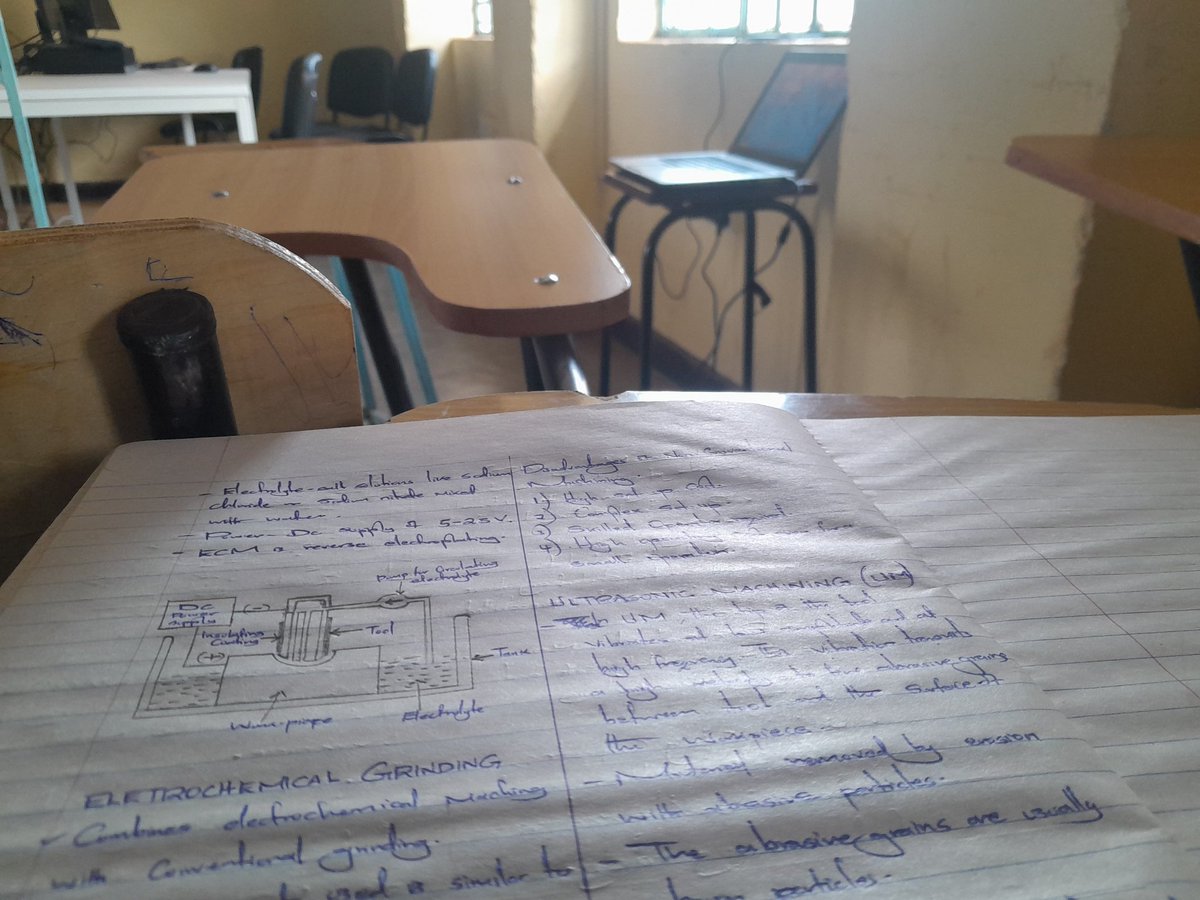 - Electrolyte-salt solutions like sodium
chloride or sodium nitrate mixed
with water.
- Power- DC supply of 5-25V.
- ECM is reverse electroplating.
Pump for Circulating
electrolyte
DC
Power
supply
(-)
Insulating
Coating
Tool
(+)
Tank
Workpiece
Electrolyte
ELETROCHEMICAL GRINDING
- Combines electrochemical Machining
with Conventional grinding.
used is similar to
Disadvantages
Machining
1) High set up cost.
2) Complex set up
3) Skilled
4) High
small
ULTRASONIC MACHINING (UM)
UM the tool
vibrates at low and at
high frequency. The vibration
a high abrasive grains
between tool and the surface of
the workpiece.
- Material removed by erosion
with abrasive particles.
- The abrasive grains are usually
particles.